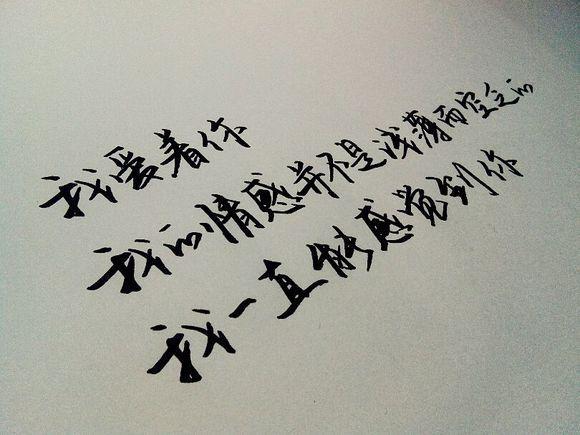 我爱着你
我的情感并不是浅薄而空乏的
我一直能感觉到你